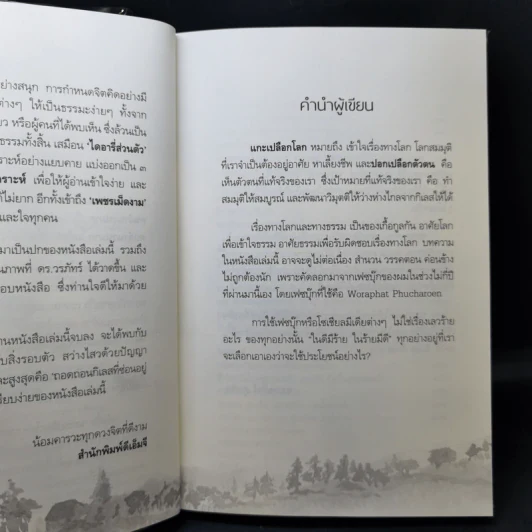 ย่างสนุก การกำหนดจิตคิดอย่างมี
ต่างๆ ให้เป็นธรรมะง่ายๆ ทั้งจาก
ยว หรือผู้คนที่ได้พบเห็น ซึ่งล้วนเป็น
ธรรมทั้งสิ้น เสมือน 'ไดอารี่ส่วนตัว'
ราะห์อย่างแยบคาย แบ่งออกเป็น ๓
คราะห์ เพื่อให้ผู้อ่านเข้าใจง่าย และ
ก็ไม่ยาก อีกทั้งเข้าถึง 'เพชรเม็ดงาม'
และใจทุกคน
มาเป็นปกของหนังสือเล่มนี้ รวมถึง
นภาพที่ ดร.วรภัทร์ ได้วาดขึ้น และ
อบหนังสือ ซึ่งท่านใจดีให้มาด้วย
านหนังสือเล่มนี้จบลง จะได้พบกับ
บสิ่งรอบตัว สว่างไสวด้วยปัญญา
และสูงสุดคือ 'ถอดถอนกิเลสที่ซ่อนอยู่
รียบง่ายของหนังสือเล่มนี้
น้อมคารวะทุกดวงจิตที่ดีงาม
สำนักพิมพ์ดีเอ็มจี
คำนำผู้เขียน
แกะเปลือกโลก หมายถึง เข้าใจเรื่องทางโลก โลกสมมุติ
ที่เราจำเป็นต้องอยู่อาศัย หาเลี้ยงชีพ และปอกเปลือกตัวตน คือ
เห็นตัวตนที่แท้จริงของเรา ซึ่งเป้าหมายที่แท้จริงของเรา คือ ทำ
สมมุติให้สมบูรณ์ และพัฒนาวิมุตติให้ว่างห่างไกลจากกิเลสให้ได้
เรื่องทางโลกและทางธรรม เป็นของเกื้อกูลกัน อาศัยโลก
เพื่อเข้าใจธรรม อาศัยธรรมเพื่อรับผิดชอบเรื่องทางโลก บทความ
ในหนังสือเล่มนี้ อาจจะดูไม่ต่อเนื่อง สำนวน วรรคตอน ค่อนข้าง
ไม่ถูกต้องนัก เพราะคัดลอกมาจากเฟซบุ๊กของผมในช่วงไม่กี่ปี
ที่ผ่านมานี้เอง โดยเฟซบุ๊กที่ใช้คือ Woraphat Phucharoen
การใช้เฟซบุ๊กหรือโซเชียลมีเดียต่างๆ ไม่ใช่เรื่องเลวร้าย
อะไร ของทุกอย่างนั้น "ในดีมีร้าย ในร้ายมีดี" ทุกอย่างอยู่ที่เรา
จะเลือกเอาเองว่าจะใช้ประโยชน์อย่างไร?